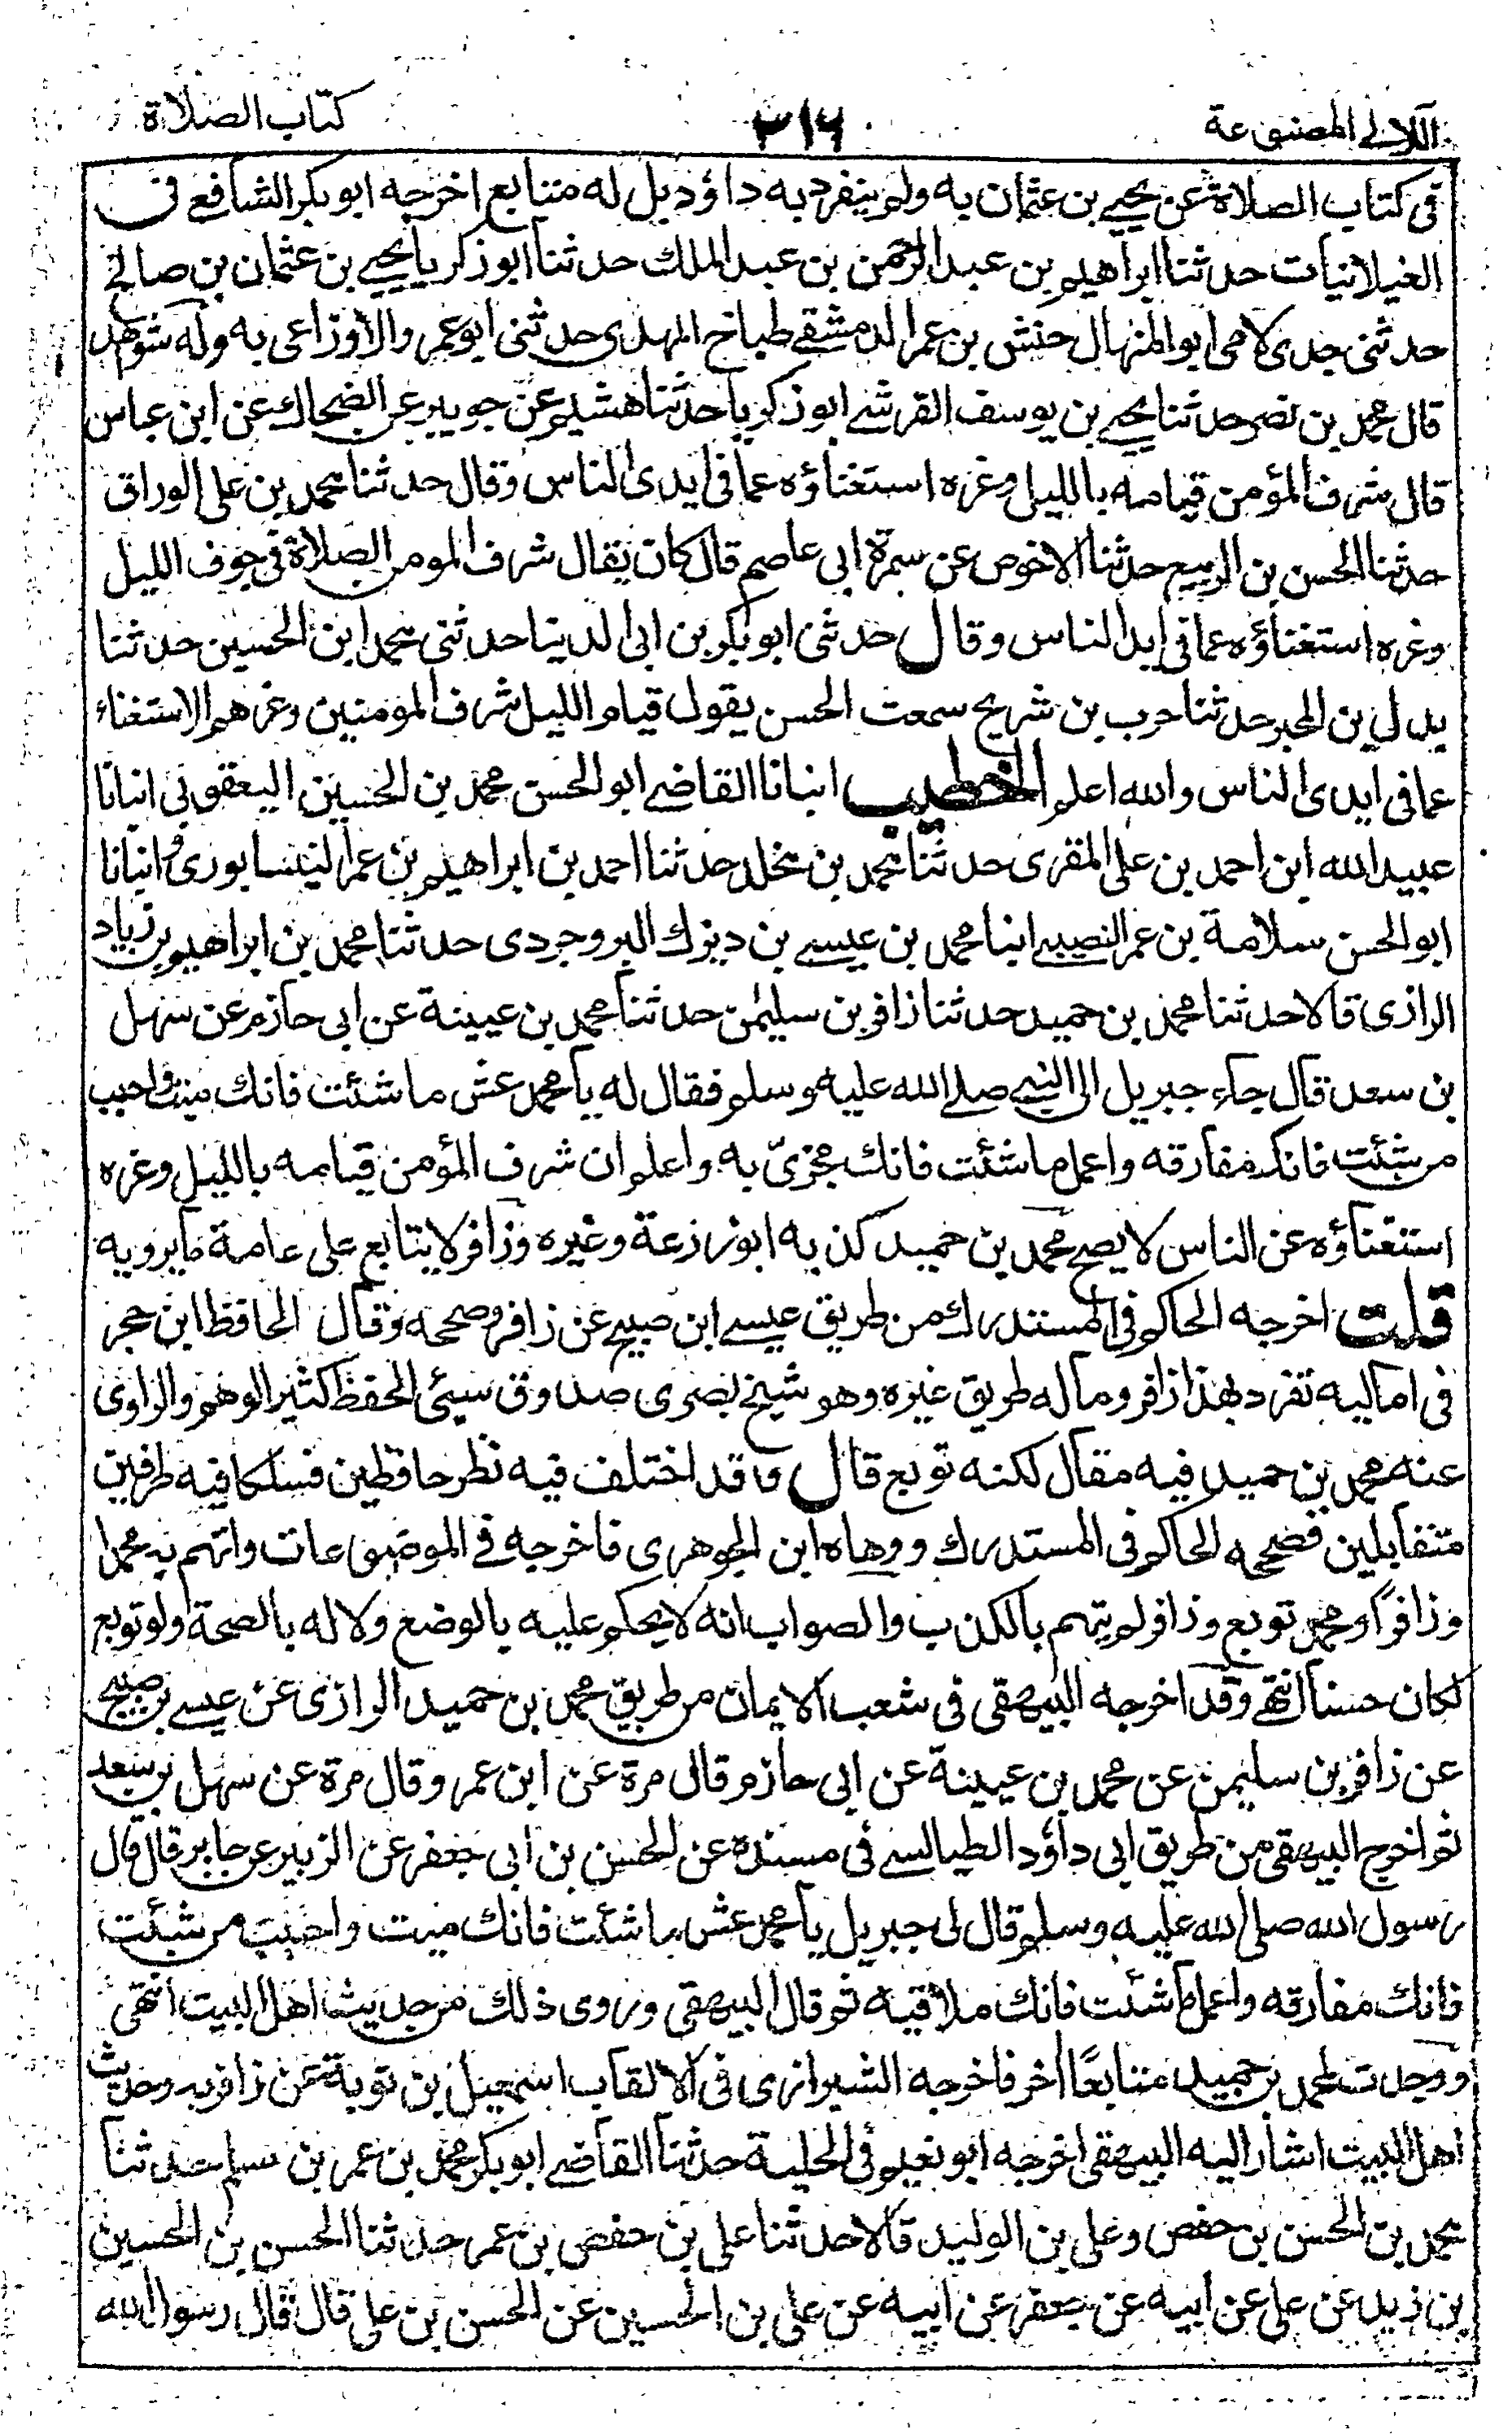 اللآلے المصنوعة
٣١٦
كتاب الصلاة
فى كتاب الصلاة عن يحيے بن عثمان به ولم ينفرد به داؤد بل له متابع اخرجه ابو بكر الشافعے فى
الغيلانيات حدثنا ابراهيم بن عبد الرحمن بن عبد الملك حدثنا ابو زكريا يحيے بن عثمان بن صالح
حدثنى جدى لامى ابو المنهال حنش بن عمر الدمشقے طباخ المهدى حدثنى ابو عمرو الاوزاعى به وله شواهد
قال محمد بن نصر حدثنا يحيے بن يوسف القرشے ابو زكريا حدثنا هشيم عن جويبر عن الضحاك عن ابن عباس
قال شرف المؤمن قيامه بالليل وعزه استغناؤه عما فى ايدى الناس وقال حدثنا محمد بن على الوراق
حدثنا الحسن بن الربيع حدثنا الاخوص عن سمرة ابى عاصم قال كان يقال شرف المومن الصلاة فى جوف الليل
وعزه استغناؤه عما فى ايد الناس وقال حدثنى ابو بكر بن ابى الدنيا حدثنى محمد ابن الحسين حدثنا
بدل بن المحبر حدثنا حرب بن شريح سمعت الحسن يقول قيام الليل شرف المومنين وعزهم الاستغناء
عما فى ايدى الناس والله اعلم الخطيب انبانا القاضے ابو الحسن محمد بن الحسين اليعقوبى انبانا
عبيد الله ابن احمد بن على المقرى حدثنا محمد بن مخلد حدثنا احمد بن ابراهيم بن عمر النيسابورى وانبانا
ابو الحسن سلامة بن عمر النصيبے انبا محمد بن عيسے بن ديزك البروجردى حدثنا محمد بن ابراهيم بن زياد
الرازى قالا حدثنا محمد بن حميد حدثنا زافر بن سليمٰن حدثنا محمد بن عيينة عن ابى حازم عن سهل
بن سعد قال جاء جبريل الى النبے صلے الله عليه وسلم فقال له يا محمد عش ما شئت فانك ميت واحبب
من شئت فانك مفارقه واعمل ما شئت فانك مجزىّ به واعلم ان شرف المؤمن قيامه بالليل وعزه
استغناؤه عن الناس لا يصح محمد بن حميد كذبه ابو زرعة وغيره وزافر لا يتابع على عامة ما يرويه
قلت اخرجه الحاكم فى المستدرك من طريق عيسے ابن صبيح عن زافر وصححه وقال الحافظ ابن حجر
فى اماليه تفرد بهذا زافر وماله طريق غيره وهو شيخ بصرى صدوق سيئى الحفظ كثير الوهم والراوى
عنه محمد بن حميد فيه مقال لكنه توبع قال وقد اختلف فيه نظر حافظين فسلكا فيه طرفين
متقابلين فصححه الحاكم فى المستدرك ووهاه ابن الجوهرى فاخرجه فے الموضوعات واتهم به محمدا
وزافرًا ومحمد توبع وزافر لم يتهم بالكذب والصواب انه لا يحكم عليه بالوضع ولا له بالصحة ولو توبع
لكان حسنا انتهے وقد اخرجه البيهقى فى شعب الايمان من طريق محمد بن حميد الرازى عن عيسے بن صبيح
عن زافر بن سليمن عن محمد بن عيينة عن ابى حازم قال مرة عن ابن عمر وقال مرة عن سهل بن سعد
ثم اخرج البيهقى من طريق ابى داؤد الطيالسے فى مسنده عن الحسن بن ابى جعفر عن الزبير عن جابر قال قال
رسول الله صلى الله عليه وسلم قال لى جبريل يا محمد عش ما شئت فانك ميت واحبب من شئت
فانك مفارقه واعمل ما شئت فانك ملاقيه ثم قال البيهقى وروى ذلك من حديث اهل البيت انتهى
ووجدت لمحمد بن حميد متابعًا اخر فاخرجه الشيرازى فى الالقاب اسمعيل بن توبة عن زافر به وحديث
اهل البيت اشار اليه البيهقى اخرجه ابو نعيم فى الحلية حدثنا القاضے ابو بكر محمد بن عمر بن سلم حدثنا
محمد بن الحسن بن حفص وعلى بن الوليد قالا حدثنا على بن حفص بن عمر حدثنا الحسن بن الحسين
بن زيد عن على عن ابيه عن جعفر عن ابيه عن على بن الحسين عن الحسن بن على قال قال رسول الله